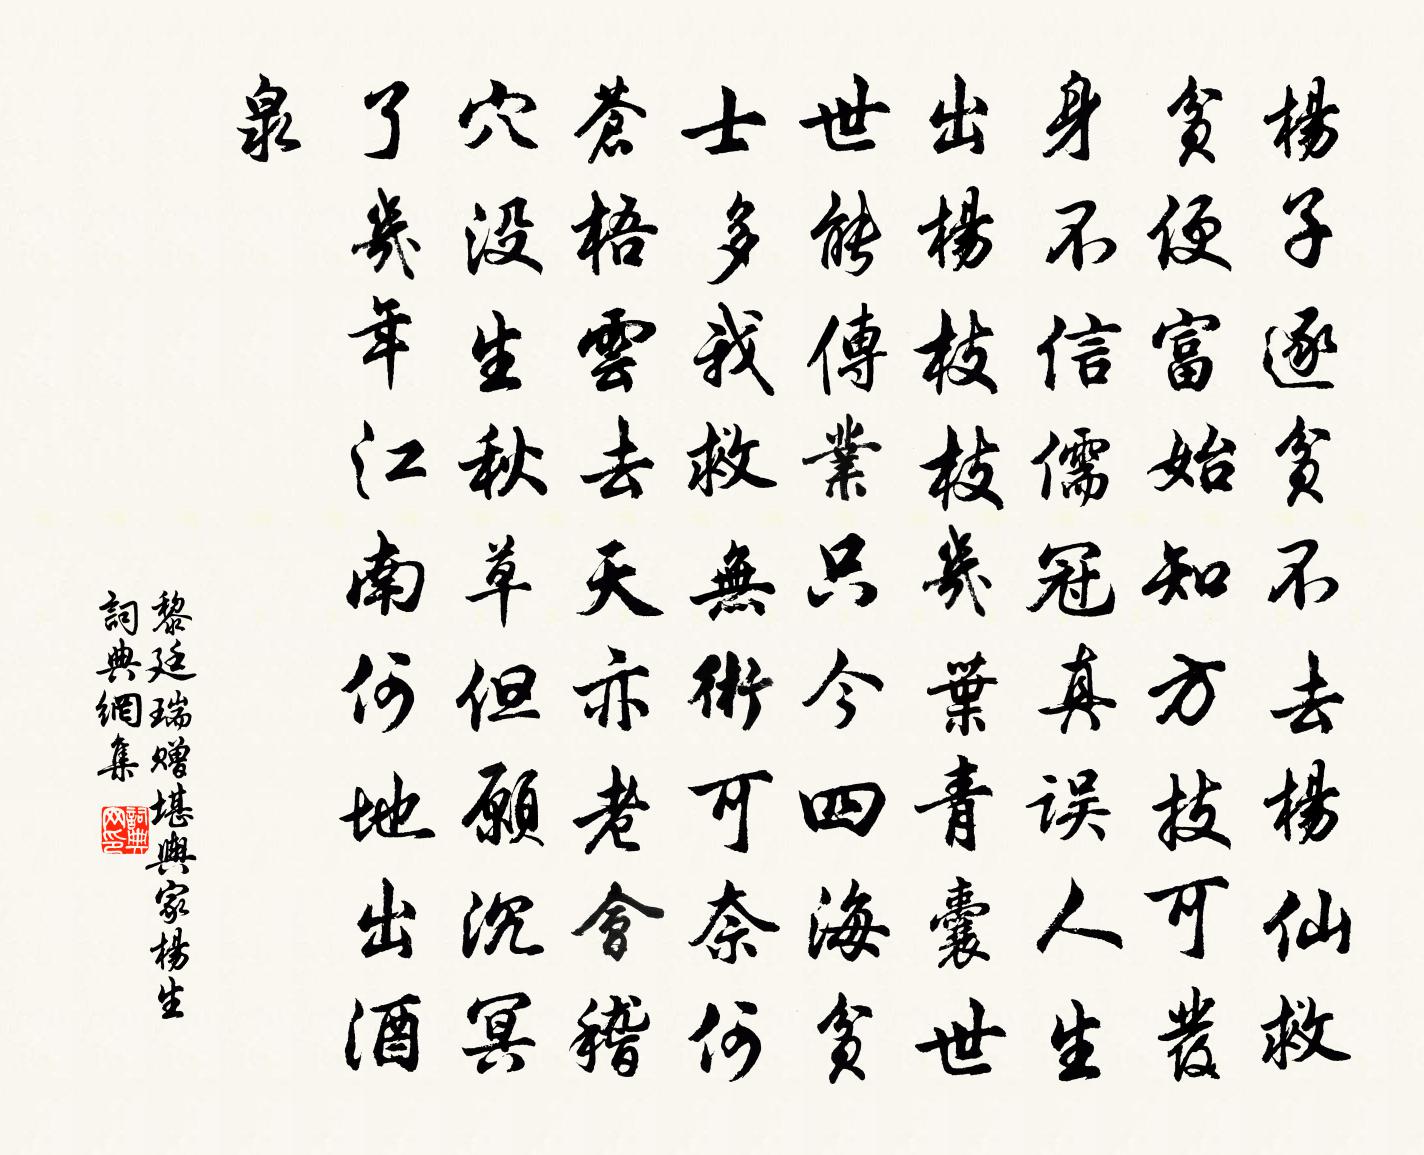 楊子逐貧不去楊仙救
貧便富始知方技可發
身不信儒冠真误人生
出楊枝枝幾葉青囊世
世能傳業只今四海貧
士多我救無術可奈何
蒼梧雲去天亦老會稽
穴没生秋草但願沉冥
了幾年江南何地出酒
泉
黎廷瑞赠堪輿家楊生
詞典網集
詞典网印